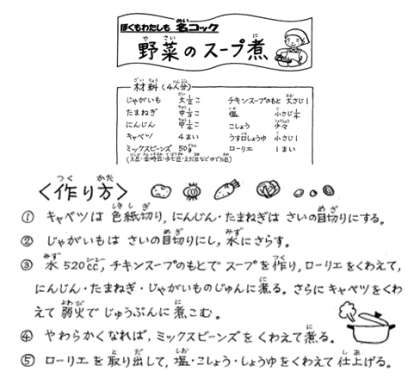 ぼくもわたしも 名コック
野菜のスープ煮
材料(4人分)
じゃがいも 大 こ チキンスープのもと 大さじ1
たまねぎ 中 こ 塩 小さじ
にんじん 中 こ こしょう 少々
キャベツ 4まい うす口しょうゆ 小さじ
ミックスビーンズ 50g ローリエ 1まい
〈作り方〉
① キャベツは 色紙切り, にんじん・たまねぎは さいの目切りにする。
② じゃがいもは さいの目切りにし, 水にさらす。
③ 水520cc, チキンスープのもとで スープを作り, ローリエをくわえて,
にんじん・たまねぎ・じゃがいものじゅんに煮る。さらにキャベツをくわ
えて 弱火で じゅうぶんに煮こむ。
④ やわらかくなれば, ミックスビーンズを くわえて煮る。
⑤ ローリエを 取り出して, 塩・こしょう・しょうゆをくわえて 仕上げる。